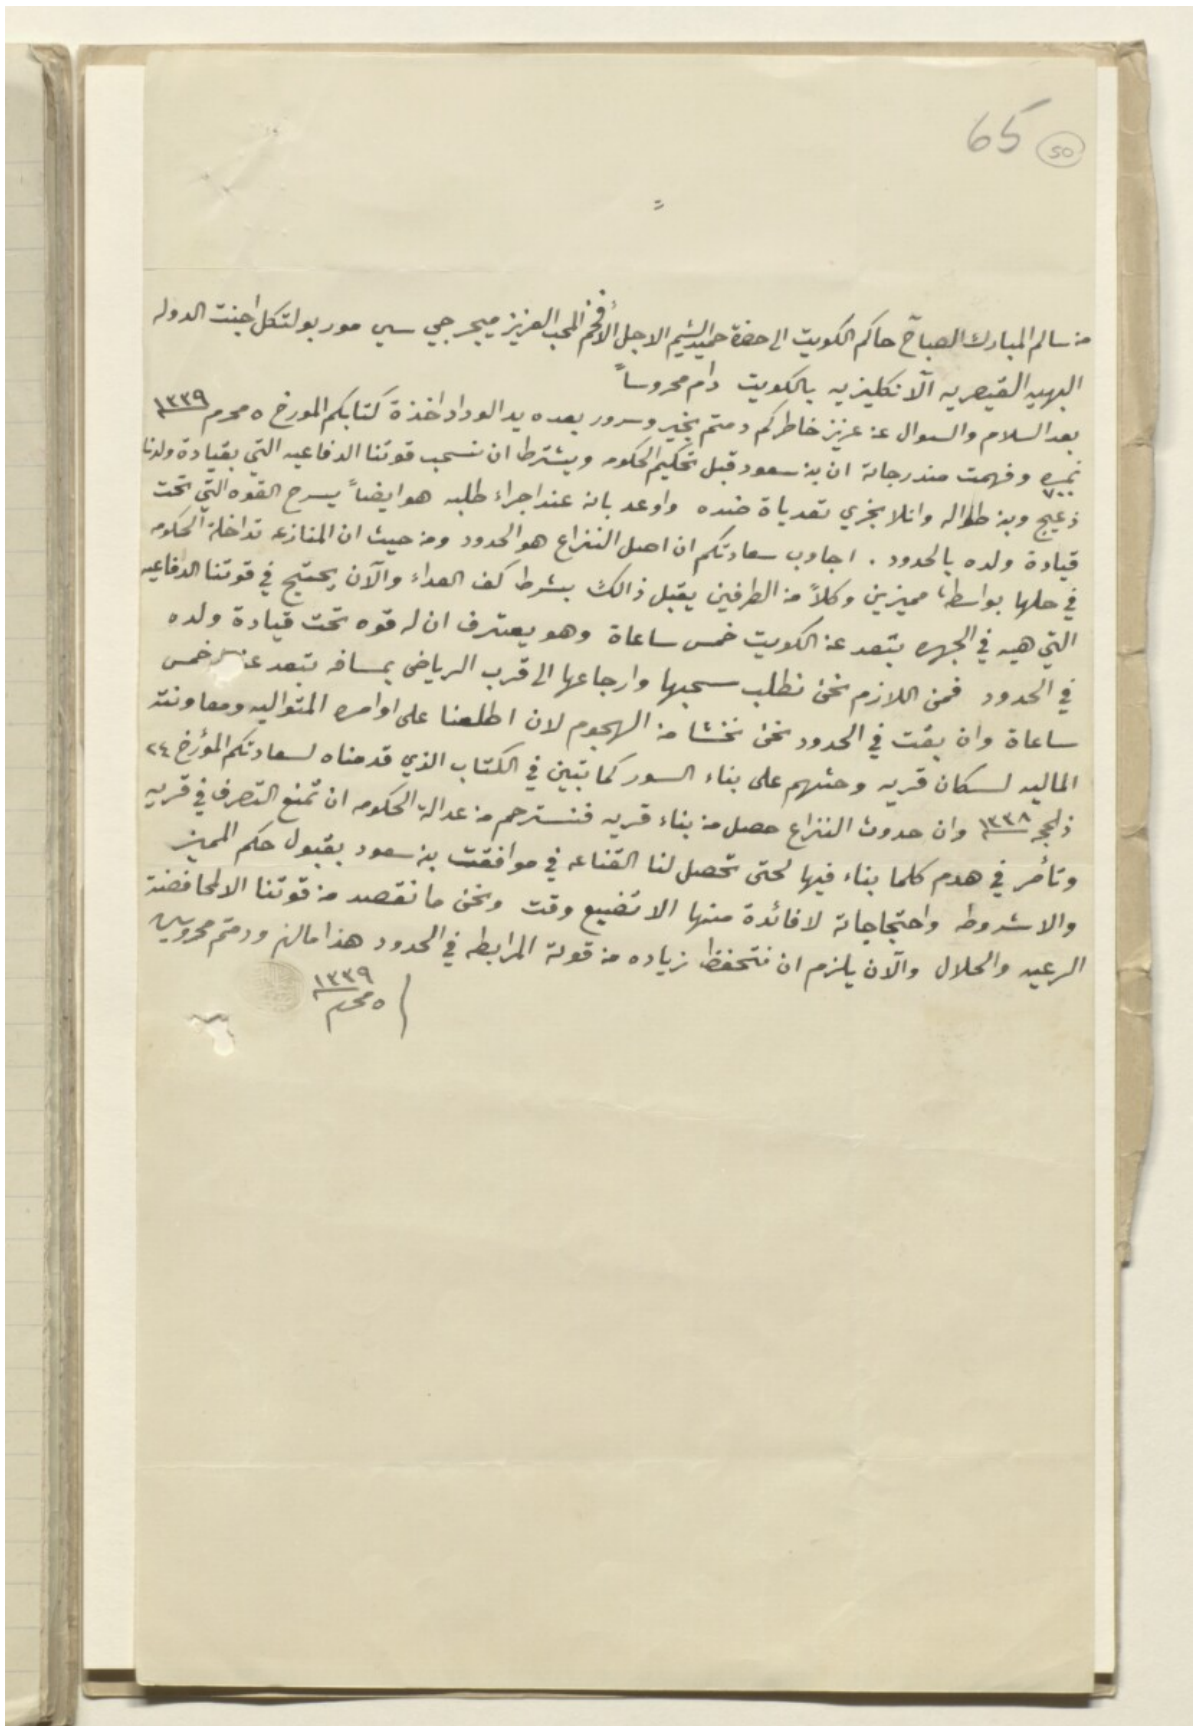 65
50
من سالم المبارك الصباح حاكم الكويت الى حضرة حميد الشيم الاجل الأفخم المحب العزيز ميجر جي سي مور بولتكل اجنت الدوله
البهيه القيصريه الانكليزيه بالكويت دام محروساً
بعد السلام والسوال عن عزيز خاطركم دمتم بخير وسرور بعده يد الوداد اخذة كتابكم المورخ ٥ محرم ١٣٣٩
نمره وفهمت مندرجاته ان بن سعود قبل تحكيم الحكومه ويشترط ان نسحب قوتنا الدفاعيه التي بقيادة ولدنا
دعيج وبن طواله وانلا يجري تعدياة ضده واوعد بانه عند اجراء طلبه هو ايضاً يسرح القوه التي تحت
قيادة ولده بالحدود . اجاوب سعادتكم ان اصل النزاع هو الحدود ومن حيث ان المنازعه تداخلة الحكومه
في حلها بواسطة مميزين وكلاً من الطرفين يقبل ذالك بشرط كف العداء والآن يحتج في قوتنا الدفاعيه
التي هيه في الجهره بتعد عن الكويت خمس ساعاة وهو يعترف ان له قوه تحت قيادة ولده
في الحدود فمن اللازم نحن نطلب سحبها وارجاعها الى قرب الرياض بمسافه تبعد عنه خمس
ساعاة وان بقت في الحدود نحن نخشا من الهجوم لان اطلعنا على اوامره المتواليه ومعاونته
الماليه لسكان قريه وحثهم على بناء السور كما تبين في الكتاب الذي قدمناه لسعادتكم المؤرخ ٢٤
ذلحجه ١٣٣٨ وان حدوث النزاع حصل من بناء قريه فنسترحم من عدالة الحكومه ان تمنع التصرف في قريه
وتأمر في هدم كلما بناء فيها لحتى تحصل لنا القناعه في موافقت بن سعود بقبول حكم المميز
والا شروطه واحتجاجاته لا فائدة منها الا تضييع وقت ونحن ما نقصد من قوتنا الا لمحافضة
الرعيه والحلال والآن يلزم ان نتحفظ زياده من قوته المرابطه في الحدود هذا مالزم ودمتم محروسين
٥ محرم ١٣٣٩